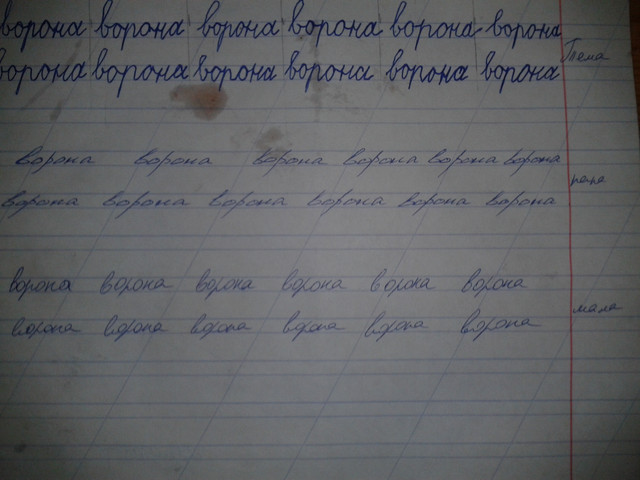 ворона ворона ворона ворона ворона ворона
ворона ворона ворона ворона ворона ворона
Тёма
ворона ворона ворона ворона ворона ворона
папа
ворона ворона ворона ворона ворона ворона
ворона ворона ворона ворона ворона ворона
мама
ворона ворона ворона ворона ворона ворона